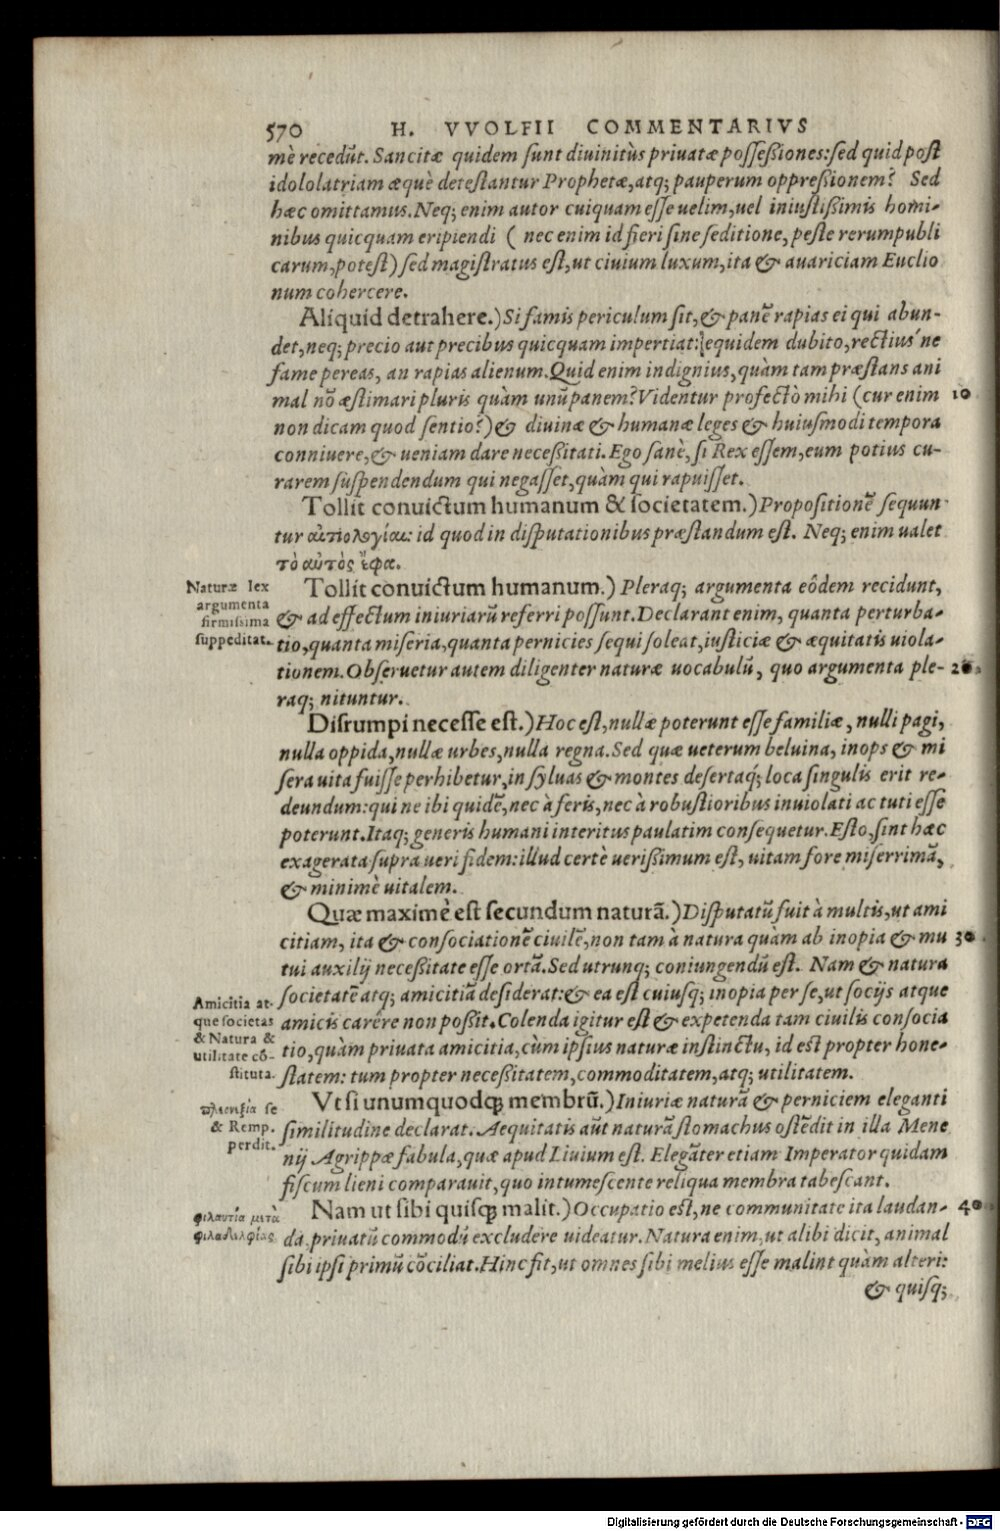 570 H. VVOLFII COMMENTARIVS
mè recedūt. Sancitæ quidem sunt diuinitùs priuatæ possessiones: sed quid post
idololatriam æquè detestantur Prophetæ, atq; pauperum oppressionem? Sed
hæc omittamus. Neq; enim autor cuiquam esse uelim, uel iniustissimis homi-
nibus quicquam eripiendi ( nec enim id fieri sine seditione, peste rerumpubli
carum, potest) sed magistratus est, ut ciuium luxum, ita & auariciam Euclio
num cohercere.
Aliquid detrahere.) Si famis periculum sit, & panē rapias ei qui abun-
det, neq; precio aut precibus quicquam impertiat: equidem dubito, rectius ne
fame pereas, an rapias alienum. Quid enim indignius, quàm tam præstans ani
mal nō æstimari pluris quàm unū panem? Videntur profectò mihi (cur enim 10
non dicam quod sentio?) & diuinæ & humanæ leges & huiusmodi tempora
conniuere, & ueniam dare necessitati. Ego sanè, si Rex essem, eum potius cu-
rarem suspendendum qui negasset, quàm qui rapuisset.
Tollit convictum humanum & societatem.) Propositionē sequun
tur αἰτιολογίαι: id quod in disputationibus præstandum est. Neq; enim ualet
τὸ αὐτὸς ἔφα.
Naturæ lex
argumenta
firmissima
suppeditat.
Tollit convictum humanum.) Pleraq; argumenta eôdem recidunt,
& ad effectum iniuriarū referri possunt. Declarant enim, quanta perturba-
tio, quanta miseria, quanta pernicies sequi soleat, iusticiæ & æquitatis uiola-
tionem. Obseruetur autem diligenter naturæ uocabulū, quo argumenta ple- 20
raq; nituntur.
Disrumpi necesse est.) Hoc est, nullæ poterunt esse familiæ, nulli pagi,
nulla oppida, nullæ urbes, nulla regna. Sed quæ ueterum beluina, inops & mi
sera uita fuisse perhibetur, in syluas & montes desertaq́; loca singulis erit re-
deundum: qui ne ibi quidē, nec à feris, nec à robustioribus inuiolati ac tuti esse
poterunt. Itaq; generis humani interitus paulatim consequetur. Esto, sint hæc
exagerata supra ueri fidem: illud certè uerissimum est, uitam fore miserrimā,
& minimè uitalem.
Quæ maximè est secundum naturā.) Disputatū fuit à multis, ut ami
citiam, ita & consociationē ciuilē, non tam à natura quàm ab inopia & mu 30
tui auxilij necessitate esse ortā. Sed utrunq; coniungendū est. Nam & natura
societatē atq; amicitiā desiderat: & ea est cuiusq; inopia per se, ut socijs atque
Amicitia at-
que societas
& Natura &
utilitate cō-
stituta.
amicis carêre non possit. Colenda igitur est & expetenda tam ciuilis consocia
tio, quàm priuata amicitia, cùm ipsius naturæ instinctu, id est propter hone-
statem: tum propter necessitatem, commoditatem, atq; utilitatem.
πλεονεξία se
& Remp.
perdit.
Vt si unumquodq; membrū.) Iniuriæ naturā & perniciem eleganti
similitudine declarat. Aequitatis aūt naturā stomachus ostēdit in illa Mene
nij Agrippæ fabula, quæ apud Liuium est. Elegāter etiam Imperator quidam
fiscum lieni comparauit, quo intumescente reliqua membra tabescant.
φιλαυτία μετὰ
φιλαδελφίας
Nam ut sibi quisq; malit.) Occupatio est, ne communitate ita laudan- 40
da, priuatū commodū excludere uideatur. Natura enim, ut alibi dicit, animal
sibi ipsi primū cōciliat. Hinc fit, ut omnes sibi melius esse malint quàm alteri:
& quisq;
Digitalisierung gefördert durch die Deutsche Forschungsgemeinschaft - DFG